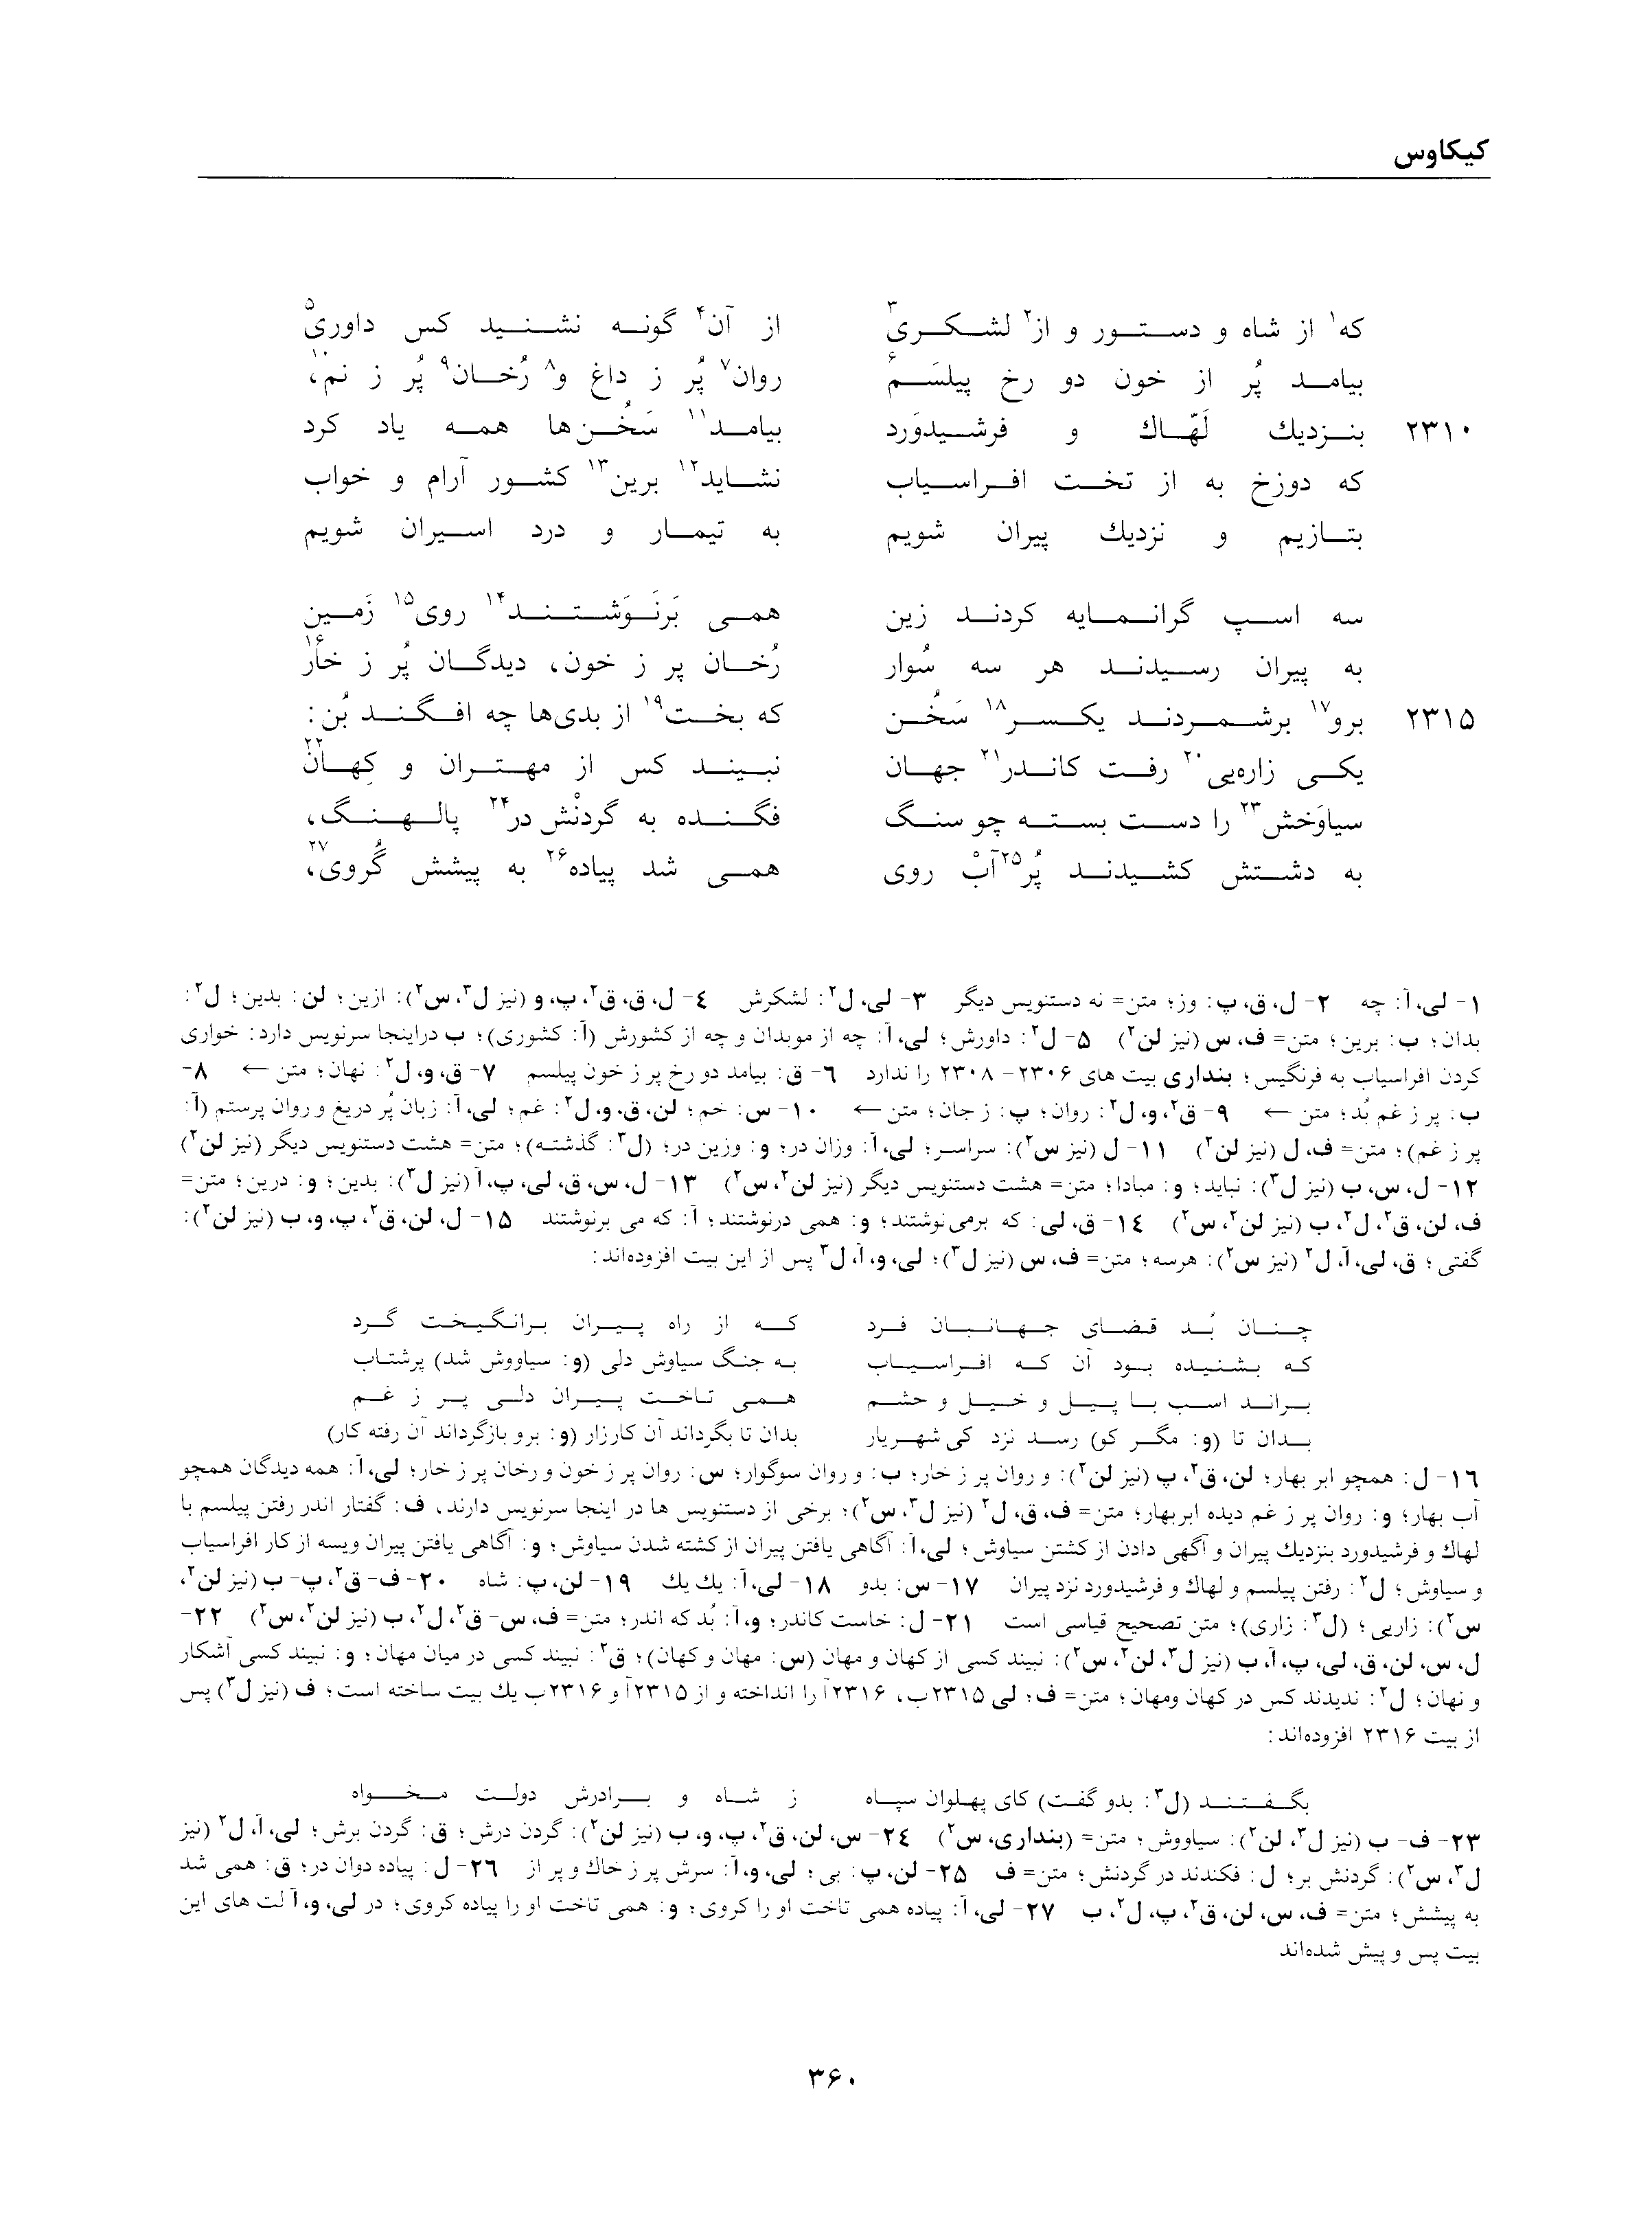 کیکاوس
که¹ از شاه و دستور و از² لشکری³ از آن⁴ گونه نشنید کس داوری⁵
بیامد پُر از خون دو رخ پیلسَم⁶ روان⁷ پُر ز داغ و⁸ رُخان⁹ پُر ز نم¹⁰،
۲۳۱۰ بنزدیك لَهّاك و فرشیدوَرد بیامد¹¹ سَخُن‌ها همه یاد کرد
که دوزخ به از تخت افراسیاب نشاید¹² برین¹³ کشور آرام و خواب
بتازیم و نزدیك پیران شویم به تیمار و درد اسیران شویم
سه اسپ گرانمایه کردند زین همی بَرنَوَشتند¹⁴ روی¹⁵ زَمین
به پیران رسیدند هر سه سُوار رُخان پر ز خون، دیدگان پُر ز خار¹⁶
۲۳۱۵ برو¹⁷ برشمردند یکسر¹⁸ سَخُن که بخت¹⁹ از بدی‌ها چه افگند بُن:
یکی زاره‌یی²⁰ رفت کاندر²¹ جهان نبیند کس از مهتران و کِهان²²
سیاوَخش²³ را دست بسته چو سنگ فگنده به گردنْش در²⁴ پالهنگ،
به دشتش کشیدند پُر²⁵ آبْ روی همی شد پیاده²⁶ به پیشش گُروی²⁷،
۱- لی، آ: چه ۲- ل، ق، پ: وز؛ متن= نه دستنویس دیگر ۳- لی، ل²: لشکرش ٤- ل، ق، ق²، پ، و (نیز ل³، س²): ازین؛ لن: بدین؛ ل²:
بدان؛ ب: برین؛ متن= ف، س (نیز لن²) ۵- ل²: داورش؛ لی، آ: چه از موبدان و چه از کشورش (آ: کشوری)؛ ب دراینجا سرنویس دارد: خواری
کردن افراسیاب به فرنگیس؛ بنداری بیت های ۲۳۰۶- ۲۳۰۸ را ندارد ۶- ق: بیامد دو رخ پر ز خون پیلسم ۷- ق، و، ل²: نهان؛ متن ← ۸-
ب: پر ز غم بُد؛ متن ← ۹- ق²، و، ل²: روان؛ پ: ز جان؛ متن ← ۱۰- س: خم؛ لن، ق، و، ل²: غم؛ لی، آ: زبان پُر دریغ و روان پرستم (آ:
پر ز غم)؛ متن= ف، ل (نیز لن²) ۱۱- ل (نیز س²): سراسر؛ لی، آ: وزان در؛ و: وزین در؛ (ل³: گذشته)؛ متن= هشت دستنویس دیگر (نیز لن²)
۱۲- ل، س، ب (نیز ل³): نباید؛ و: مبادا؛ متن= هشت دستنویس دیگر (نیز لن²، س²) ۱۳- ل، س، ق، لی، پ، آ (نیز ل³): بدین؛ و: درین؛ متن=
ف، لن، ق²، ل²، ب (نیز لن²، س²) ۱٤- ق، لی: که برمی‌نوشتند؛ و: همی درنوشتند؛ آ: که می برنوشتند ۱۵- ل، لن، ق²، پ، و، ب (نیز لن²):
گفتی؛ ق، لی، آ، ل² (نیز س²): هرسه؛ متن= ف، س (نیز ل³)؛ لی، و، آ، ل³ پس از این بیت افزوده‌اند:
چنان بُد قضای جهانبان فرد که از راه پیران برانگیخت گرد
که بشنیده بود آن که افراسیاب به جنگ سیاوش دلی (و: سیاووش شد) پرشتاب
براند اسب با پیل و خیل و حشم همی تاخت پیران دلی پر ز غم
بدان تا (و: مگر کو) رسد نزد کی شهریار بدان تا بگرداند آن کارزار (و: برو بازگرداند آن رفته کار)
۱۶- ل: همچو ابر بهار؛ لن، ق²، پ (نیز لن²): و روان پر ز خار؛ ب: و روان سوگوار؛ س: روان پر ز خون و رخان پر ز خار؛ لی، آ: همه دیدگان همچو
آب بهار؛ و: روان پر ز غم دیده ابربهار؛ متن= ف، ق، ل² (نیز ل³، س²)؛ برخی از دستنویس ها در اینجا سرنویس دارند، ف: گفتار اندر رفتن پیلسم با
لهاك و فرشیدورد بنزدیك پیران و آگهی دادن از کشتن سیاوش؛ لی، آ: آگاهی یافتن پیران از کشته شدن سیاوش؛ و: آگاهی یافتن پیران ویسه از کار افراسیاب
و سیاوش؛ ل²: رفتن پیلسم و لهاك و فرشیدورد نزد پیران ۱۷- س: بدو ۱۸- لی، آ: یك یك ۱۹- لن، پ: شاه ۲۰- ف- ق²، پ- ب (نیز لن²،
س²): زاریی؛ (ل³: زاری)؛ متن تصحیح قیاسی است ۲۱- ل: خاست کاندر؛ و، آ: بُد که اندر؛ متن= ف، س- ق²، ل²، ب (نیز لن²، س²) ۲۲-
ل، س، لن، ق، لی، پ، آ، ب (نیز ل³، لن²، س²): نبیند کسی از کهان و مهان (س: مهان و کهان)؛ ق²: نبیند کسی در میان مهان؛ و: نبیند کسی آشکار
و نهان؛ ل²: ندیدند کس در کهان ومهان؛ متن= ف؛ لی ۲۳۱۵ب، ۲۳۱۶آ را انداخته و از ۲۳۱۵آ و ۲۳۱۶ب یك بیت ساخته است؛ ف (نیز ل³) پس
از بیت ۲۳۱۶ افزوده‌اند:
بگفتند (ل³: بدو گفت) کای پهلوان سپاه ز شاه و برادرش دولت مخواه
۲۳- ف- ب (نیز ل³، لن²): سیاووش؛ متن= (بنداری، س²) ۲٤- س، لن، ق²، پ، و، ب (نیز لن²): گردن درش؛ ق: گردن برش؛ لی، آ، ل² (نیز
ل³، س²): گردنش بر؛ ل: فکندند در گردنش؛ متن= ف ۲۵- لن، پ: بی؛ لی، و، آ: سرش پر ز خاك و پر از ۲۶- ل: پیاده دوان در؛ ق: همی شد
به پیشش؛ متن= ف، س، لن، ق²، پ، ل²، ب ۲۷- لی، آ: پیاده همی تاخت او را کروی؛ و: همی تاخت او را پیاده کروی؛ در لی، و، آ لت های این
بیت پس و پیش شده‌اند
۳۶۰